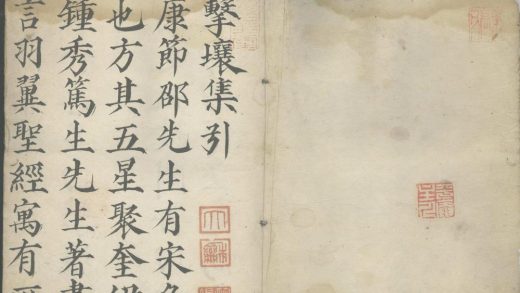 擊壤集引
康節邵先生有宋
也方其五星聚奎
鍾秀篤生先生著書
言羽翼聖經寓有